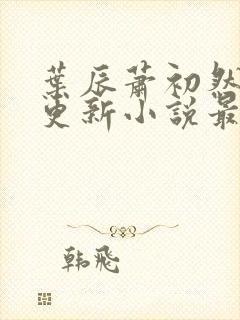 葉辰蕭初然
更新小說最
韩飛